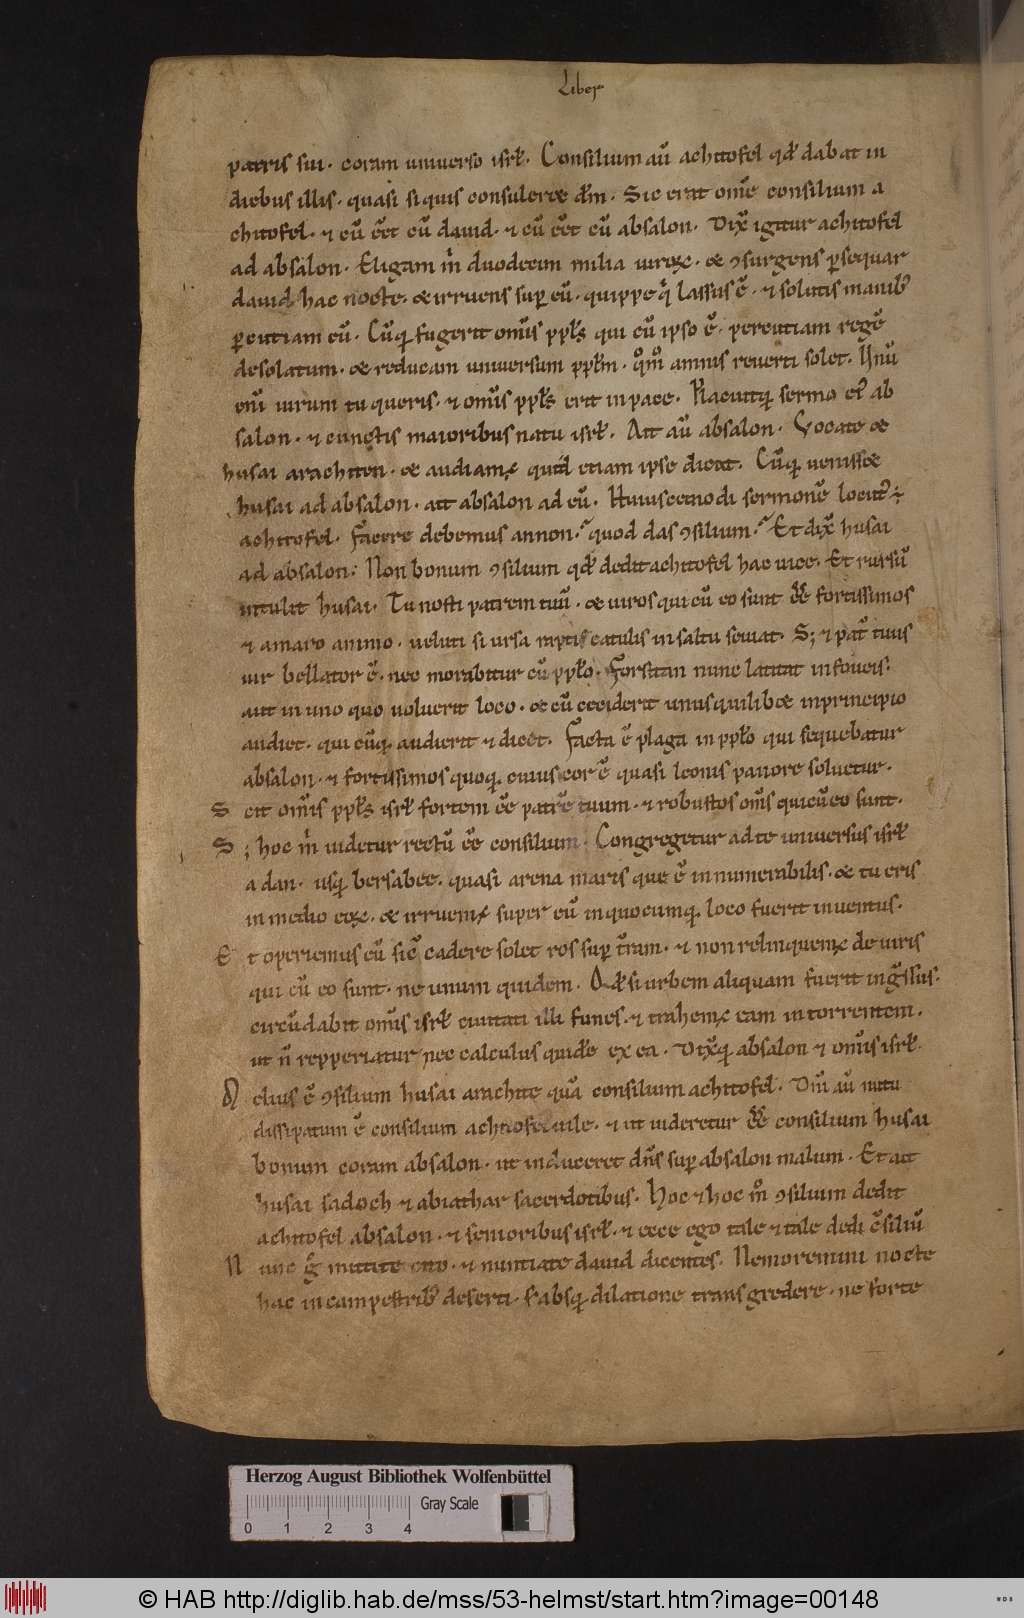 Liber
patris sui. coram uniuerso isrł. Consilium aū achitofel qđ dabat in
diebus illis. quasi siquis consuleret dm̄. Sic erat om̄e consilium a
chitofel. ⁊ cū eēt cū dauid. ⁊ cū eēt cū absalon. Dix̄ igitur achitofel
ad absalon. Eligam m̄ duodecim milia uiroꝝ. et ꝯsurgens ꝑsequar
dauid hac nocte. et irruens suꝑ eū. quippe q̄ lassus ē. ⁊ solutis manib᷒
ꝑcutiam eū. Cūq; fugerit om̄s ppłs qui cū ipso ē. percutiam regē
desolatum. et reducam uniuersum ppłm. qm̊o amnis reuerti solet. Unū
enī uirum tu queris. ⁊ om̄s ppłs erit in pace. Placuitq; sermo ei᷒ ab
salon. ⁊ cunctis maioribus natu isrł. Ait aū absalon. Vocate et
husai arachiten. et audiam᷒ quid etiam ipse dicat. Cūq; uenisset
husai ad absalon. ait absalon ad eū. Huiuscemodi sermonē locut᷒ ÷
achitofel. facere debemus annon? quod das ꝯsilium? Et dix̄ husai
ad absalon; Non bonum ꝯsilium qđ dedit achitofel hac uice. Et rursū
intulit husai. Tu nosti patrem tuū. et uiros qui cū eo sunt eē fortissimos
⁊ amaro animo. ueluti si ursa raptis catulis in saltu seuiat. S; ⁊ pat̄ tuus
uir bellator ē. nec morabitur cū ppło. Forsitan nunc latitat in foueis.
aut in uno quo uoluerit loco. et cū ceciderit unus quilibet in principio
audiet. qui cūq; audierit ⁊ dicet. Facta ē plaga in ppło qui sequebatur
absalon. ⁊ fortissimos quoq;. cuius cor ē quasi leonis pauore soluetur.
S cit om̄is ppłs isrł fortem eē patrē tuum. ⁊ robustos om̄s qui cū eo sunt.
S ; hoc m̄ uidetur rectū eē consilium. Congregetur ad te uniuersus isrł
a dan. usq; bersabee. quasi arena maris que ē innumerabilis. et tu eris
in medio eoꝝ. et irruem᷒ super eū in quocumq; loco fuerit inuentus.
E t operiemus eū sic̄ cadere solet ros suꝑ t̄ram. ⁊ non relinquem᷒ de uiris
qui cū eo sunt. ne unum quidem. Qđ si urbem aliquam fuerit ing̃ssus.
circūdabit om̄is isrł ciuitati illi funes. ⁊ trahem᷒ eam in torrentem.
ut n̄ repperiatur nec calculus quidē ex ea. Dix̄q; absalon ⁊ om̄is isrł.
M elius ē ꝯsilium husai arachite quā consilium achitofel. Dn̄i aū nutu
dissipatum ē consilium achitofel utile. ⁊ ut uideretur eē consilium husai
bonum coram absalon. ut induceret dn̄s suꝑ absalon malum. Et ait
husai sadoch ⁊ abiathar sacerdotibus. Hoc ⁊ hoc m̊o ꝯsilium dedit
achitofel absalon. ⁊ senioribus isrł. ⁊ ecce ego tale ⁊ tale dedi c̄siliū
N unc g̊ mittite cito. ⁊ nuntiate dauid dicentes. Ne moremini nocte
hac in campestrib᷒ deserti. s; absq; dilatione transgredere. ne forte
Herzog August Bibliothek Wolfenbüttel
Gray Scale
0 1 2 3 4
© HAB http://diglib.hab.de/mss/53-helmst/start.htm?image=00148